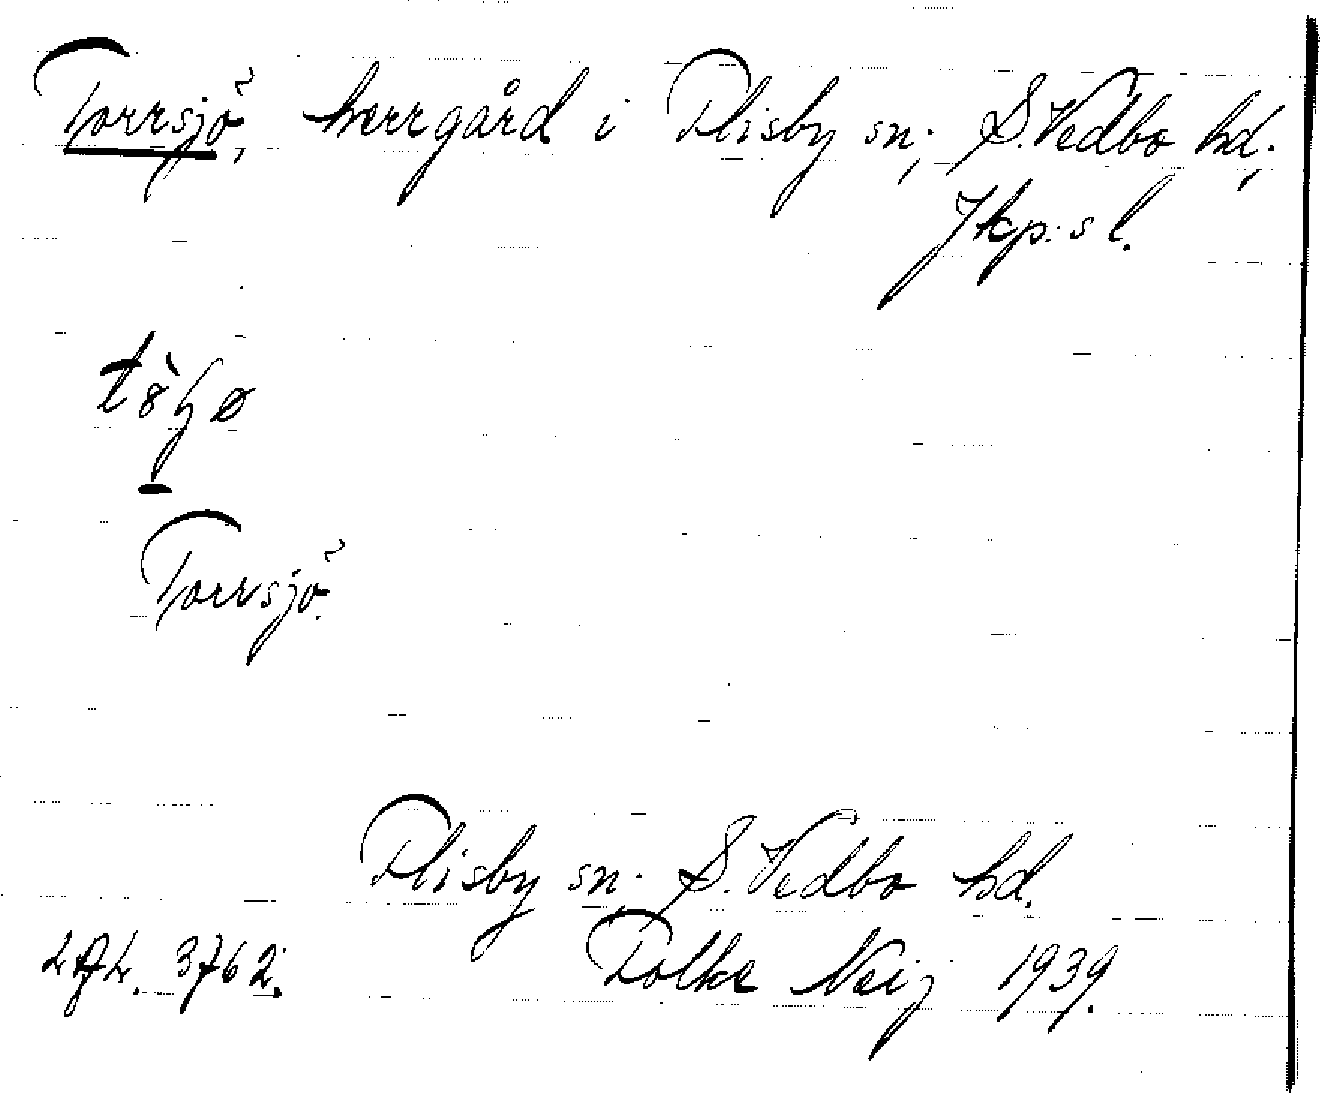 Torrsjö, herrgård i Flisby sn, S. Vedbo hd,
Jkp:s l.
Torrsjö.
Flisby sn, S. Vedbo hd.
3762. Folke Neij 1939.